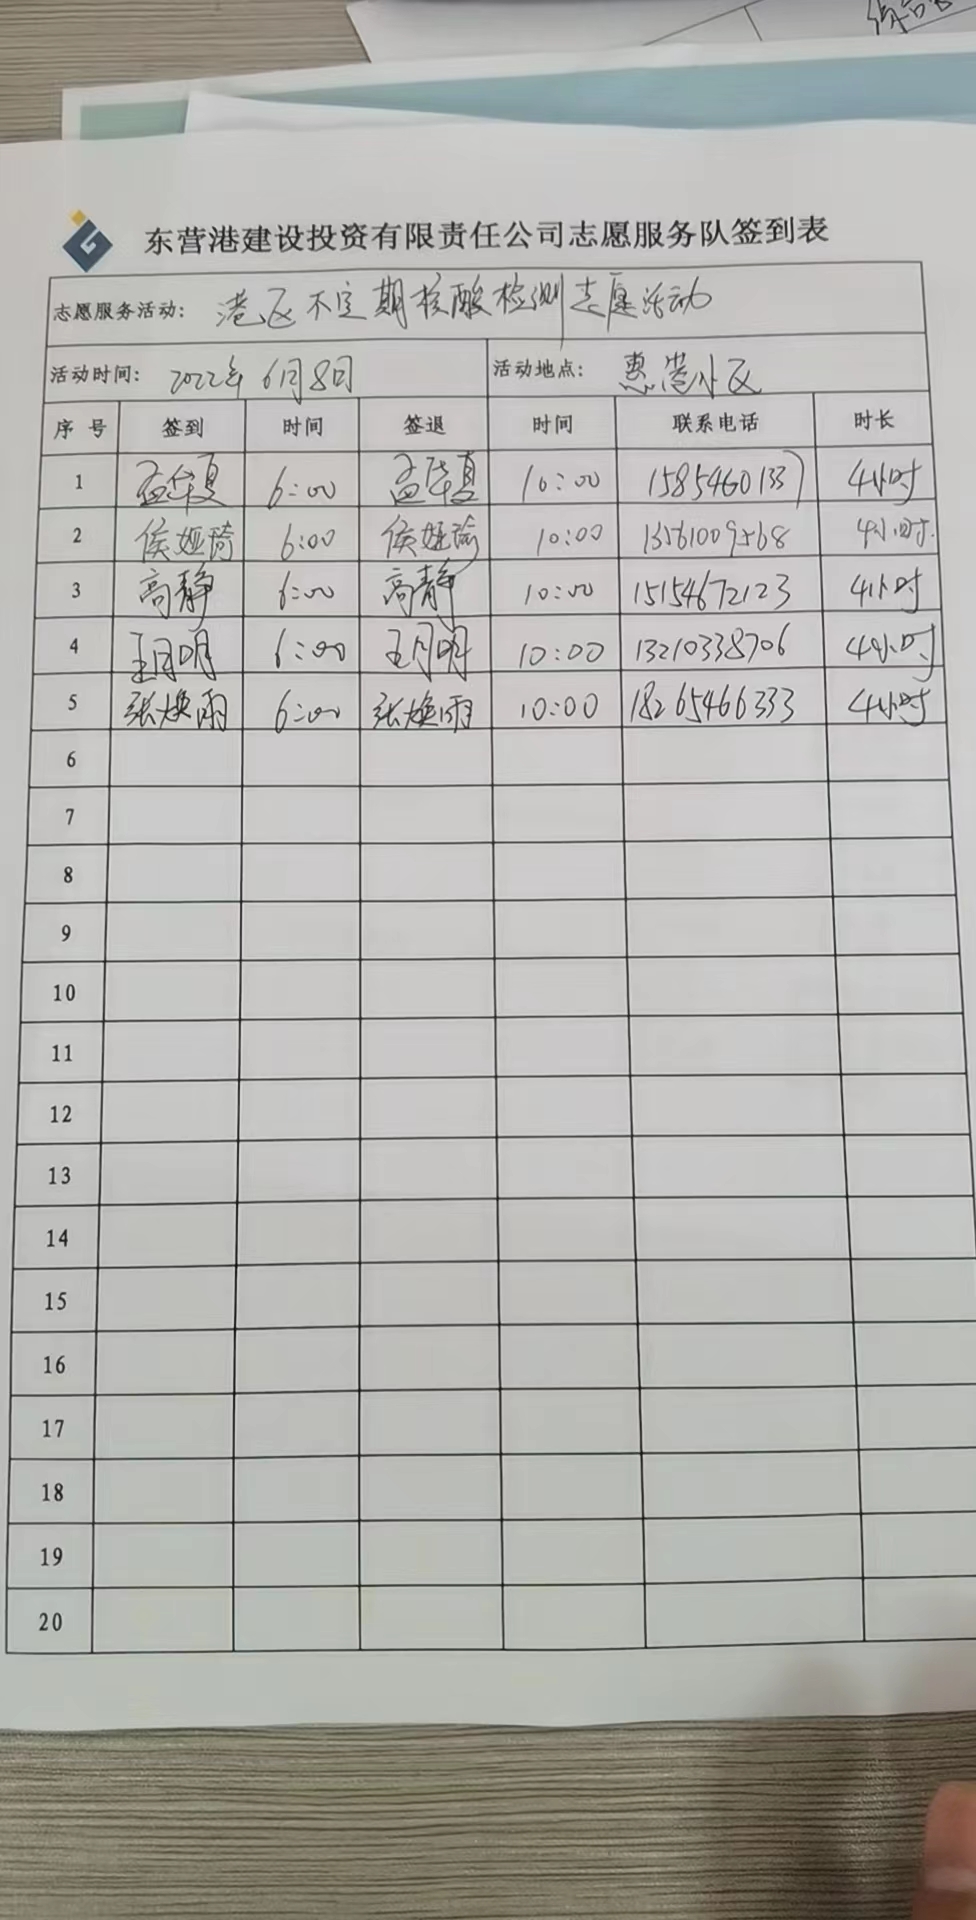 东营港建设投资有限责任公司志愿服务队签到表
志愿服务活动: 港区不定期核酸检测志愿活动
活动时间: 2022年6月8日 活动地点: 惠港小区
序号 签到 时间 签退 时间 联系电话 时长
1 孟华夏 6:00 孟华夏 10:00 15854601337 4小时
2 侯娅 6:00 侯娅 10:00 13561009568 4小时.
3 高静 6:00 高静 10:00 15154672123 4小时
4 王月明 6:00 王月明 10:00 13210338706 4小时
5 张焕雨 6:00 张焕雨 10:00 18265466333 4小时
6
7
8
9
10
11
12
13
14
15
16
17
18
19
20